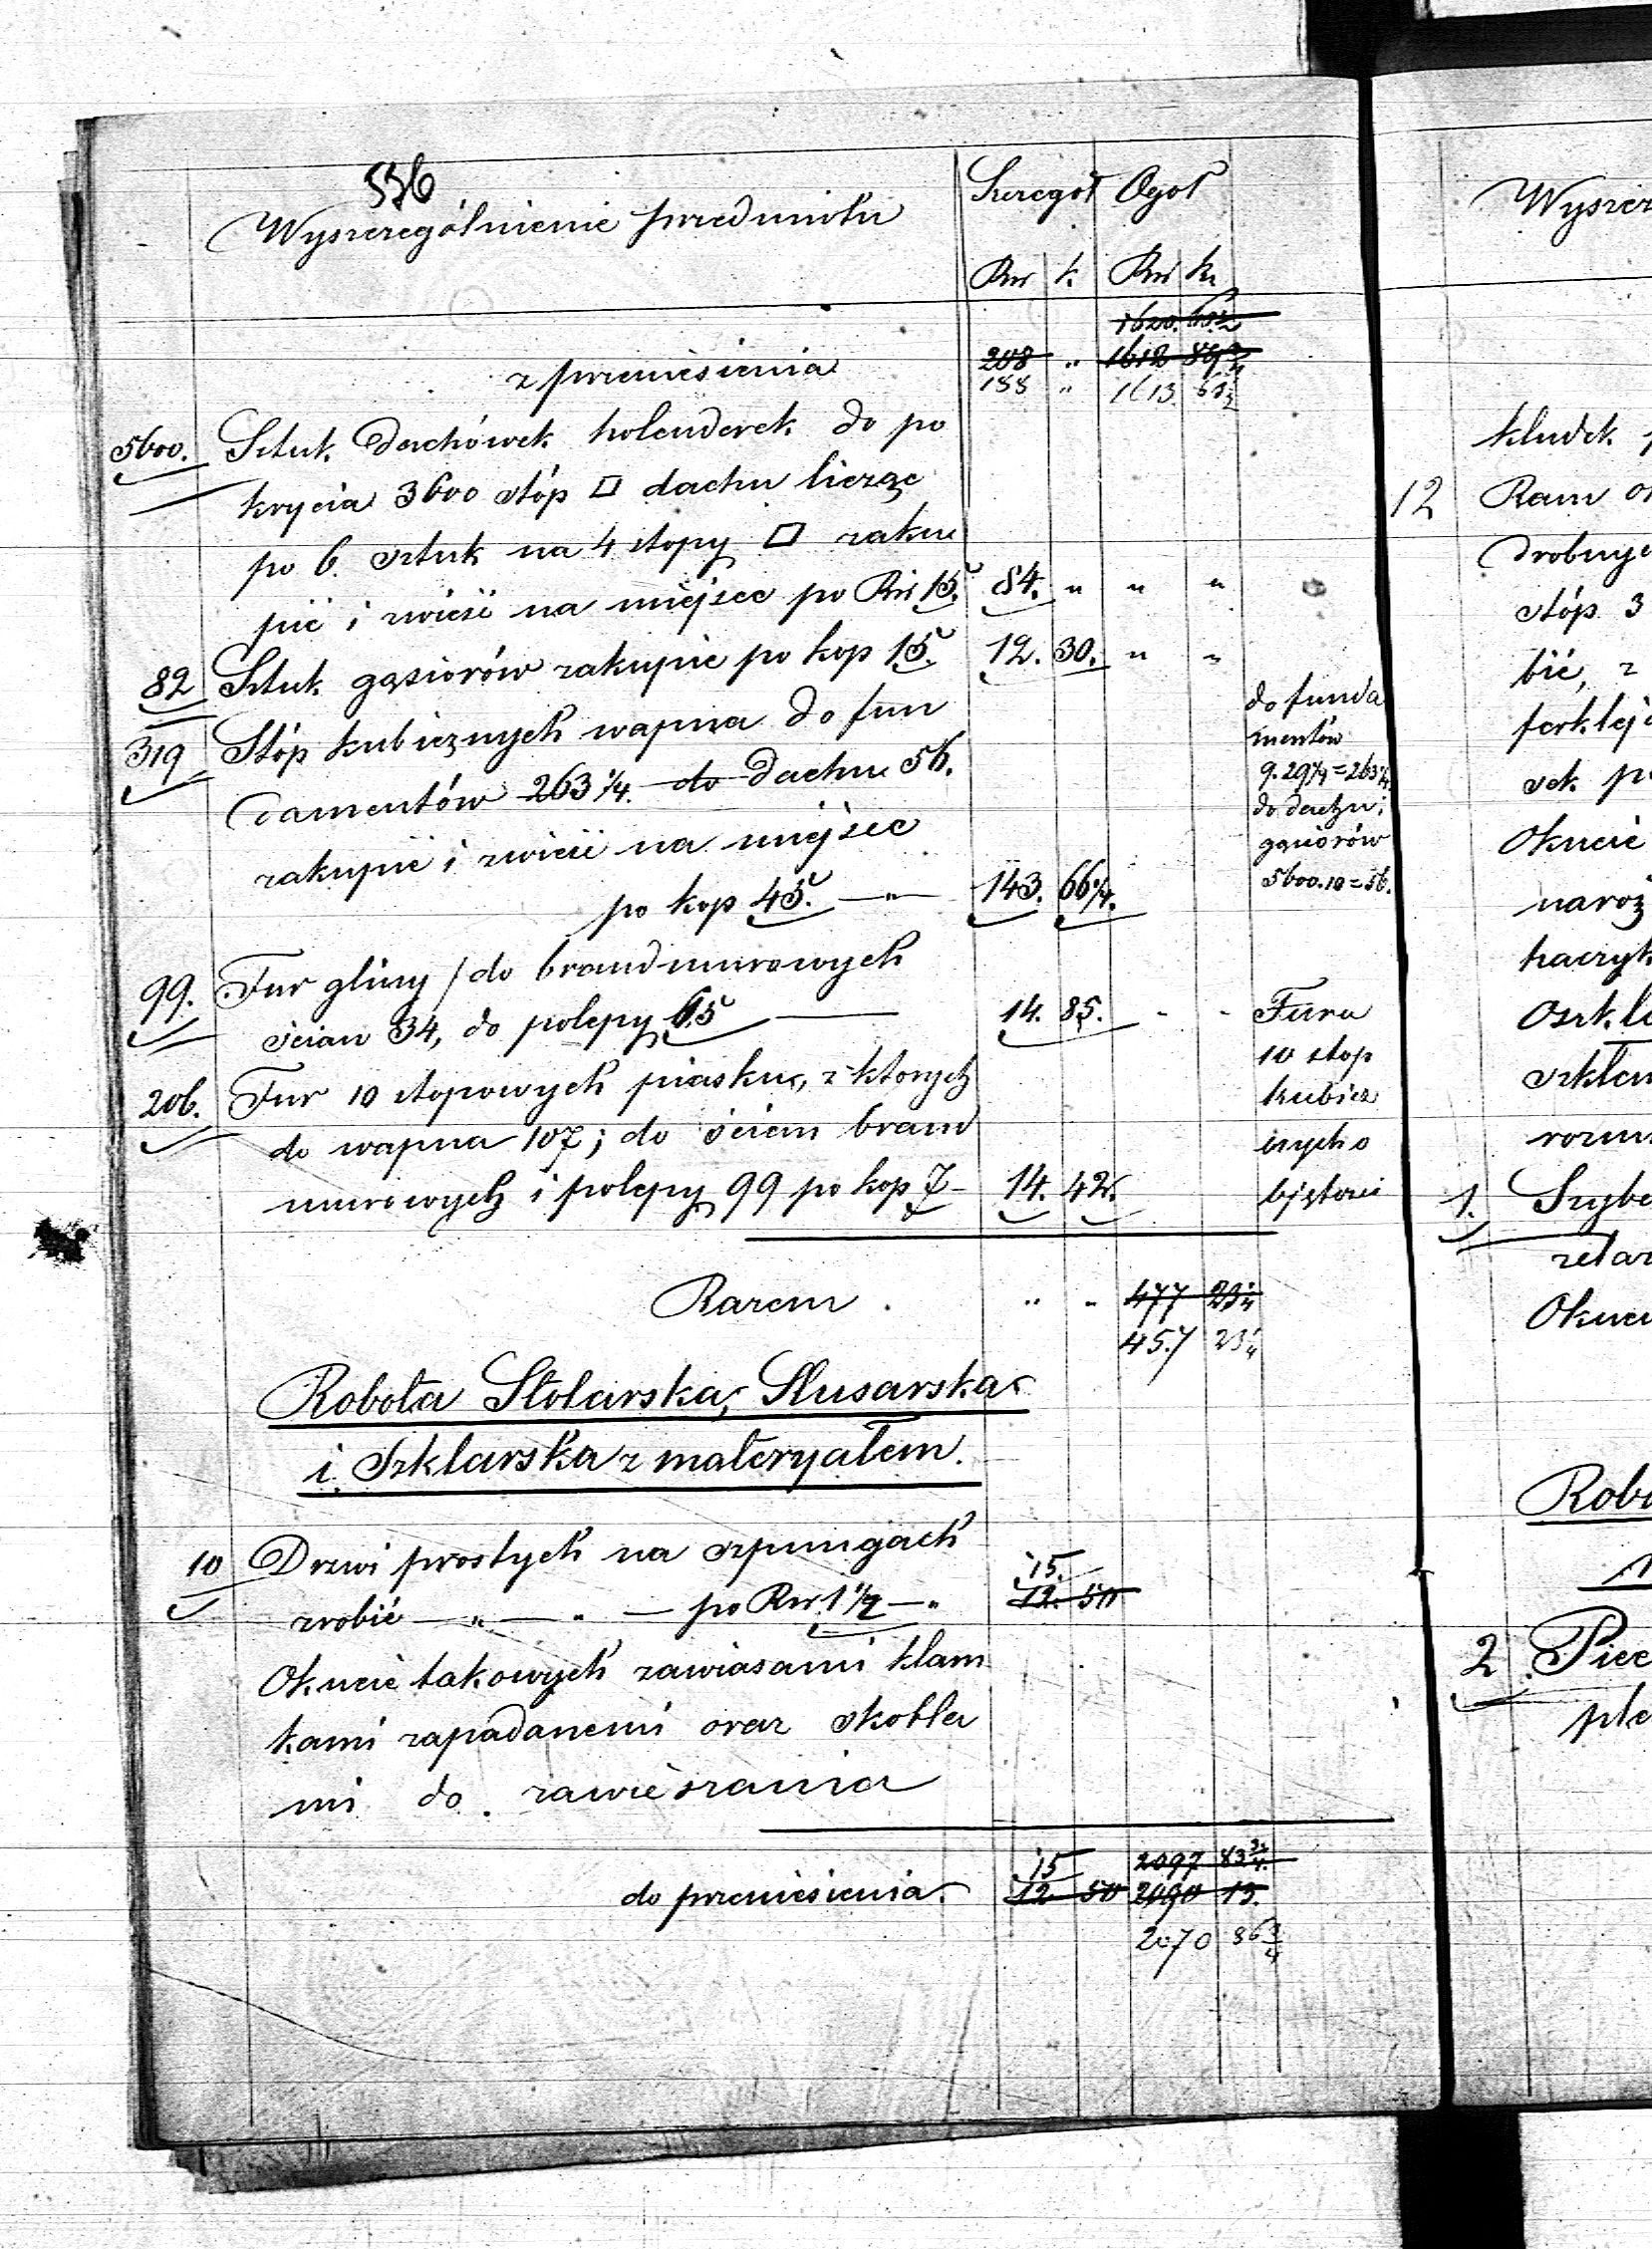 556
Wyszczególnienie przedmiotu
Szczegół Ogół
Rsr k. Rsr k.
1620. 63½
z przeniesienia 208 " 1612 86¾
188 " 1613. 63½
5600. Sztuk dachówek holenderek do po
krycia 3600 stóp □ dachu licząc
po 6. sztuk na 4 stopy □ zaku
pić i zwieść na miejsce po Rsr 15. 84. " " "
82 Sztuk gąsiorów zakupić po kop 15. 12. 30. " "
319 Stóp kubicznych wapna do fun
damentów 263¼. do dachu 56.
zakupić i zwieść na miejsce
po kop 45. — " — 143. 66¼.
do funda
mentów
9. 29¼=263¼.
do dachu i
gąsiorów
5600.10=56.
99. Fur gliny / do brandmurowych
ścian 34, do polepy 65 — 14. 85. - -
206. Fur 10 stopowych piasku, z których
do wapna 107; do ścian brand
murowych i polepy 99 po kop 7 - 14. 42.
Fura
10 stop
kubicz
nych o
bjętości
Razem . " " 477 23¼
457 23¼
Robota Stolarska, Slusarska
i Szklarska z materyałem.
10 Drzwi prostych na szpungach
15.
zrobić — " — " — po Rsr. 1½ — " 12. 50
Okucie takowych zawiasami klam
kami zapadanemi oraz skobla
mi do zawieszania
15 2097 83¾
do przeniesienia. 12 50 2090 13.
2070 86¾
Wyszcz
kludek
12 Ram
drobnyc
stóp 3
bić, z
ferklej
Okucie
naroż
haczyk
szklem
1. Szyb
Okuci
Rob
2 Piec